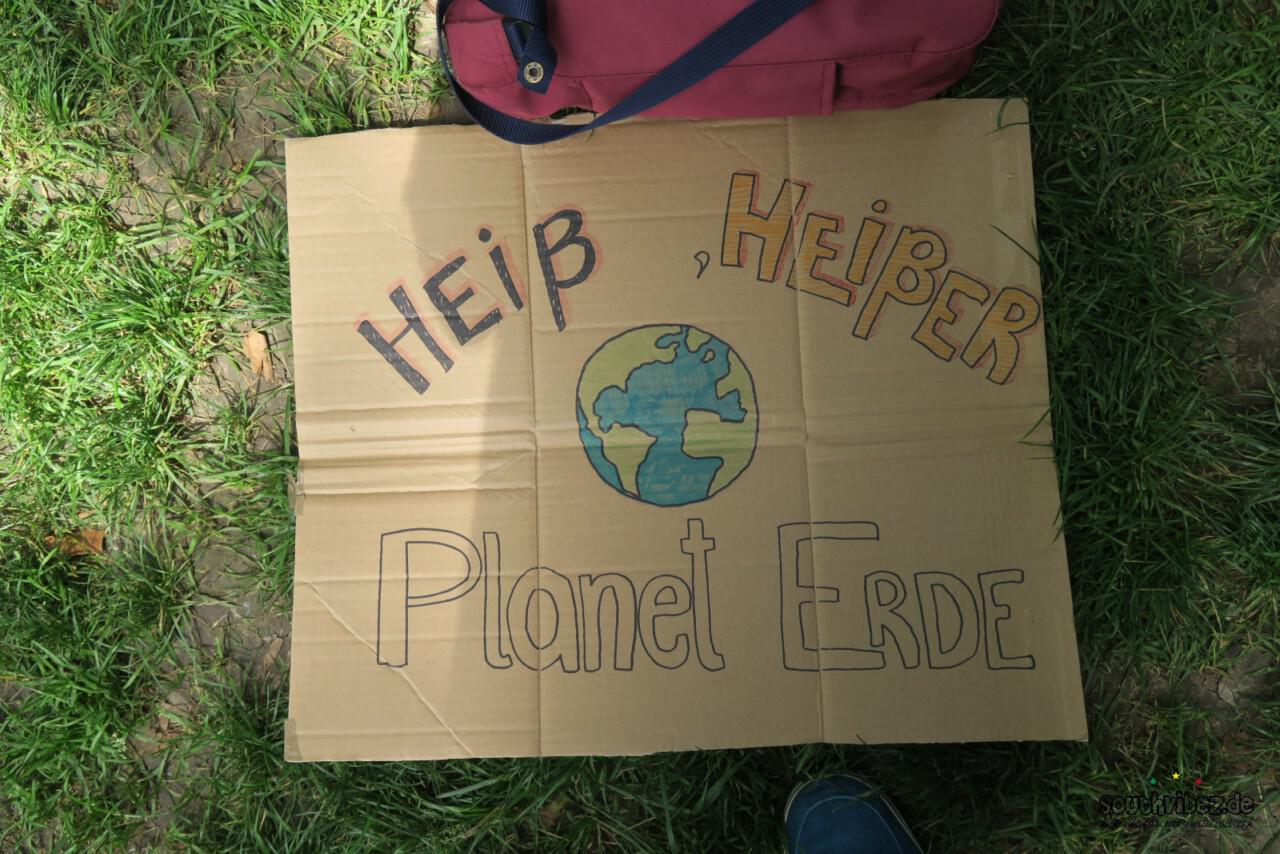 HEiß , HEißER
Planet ERDE
southvibez.de